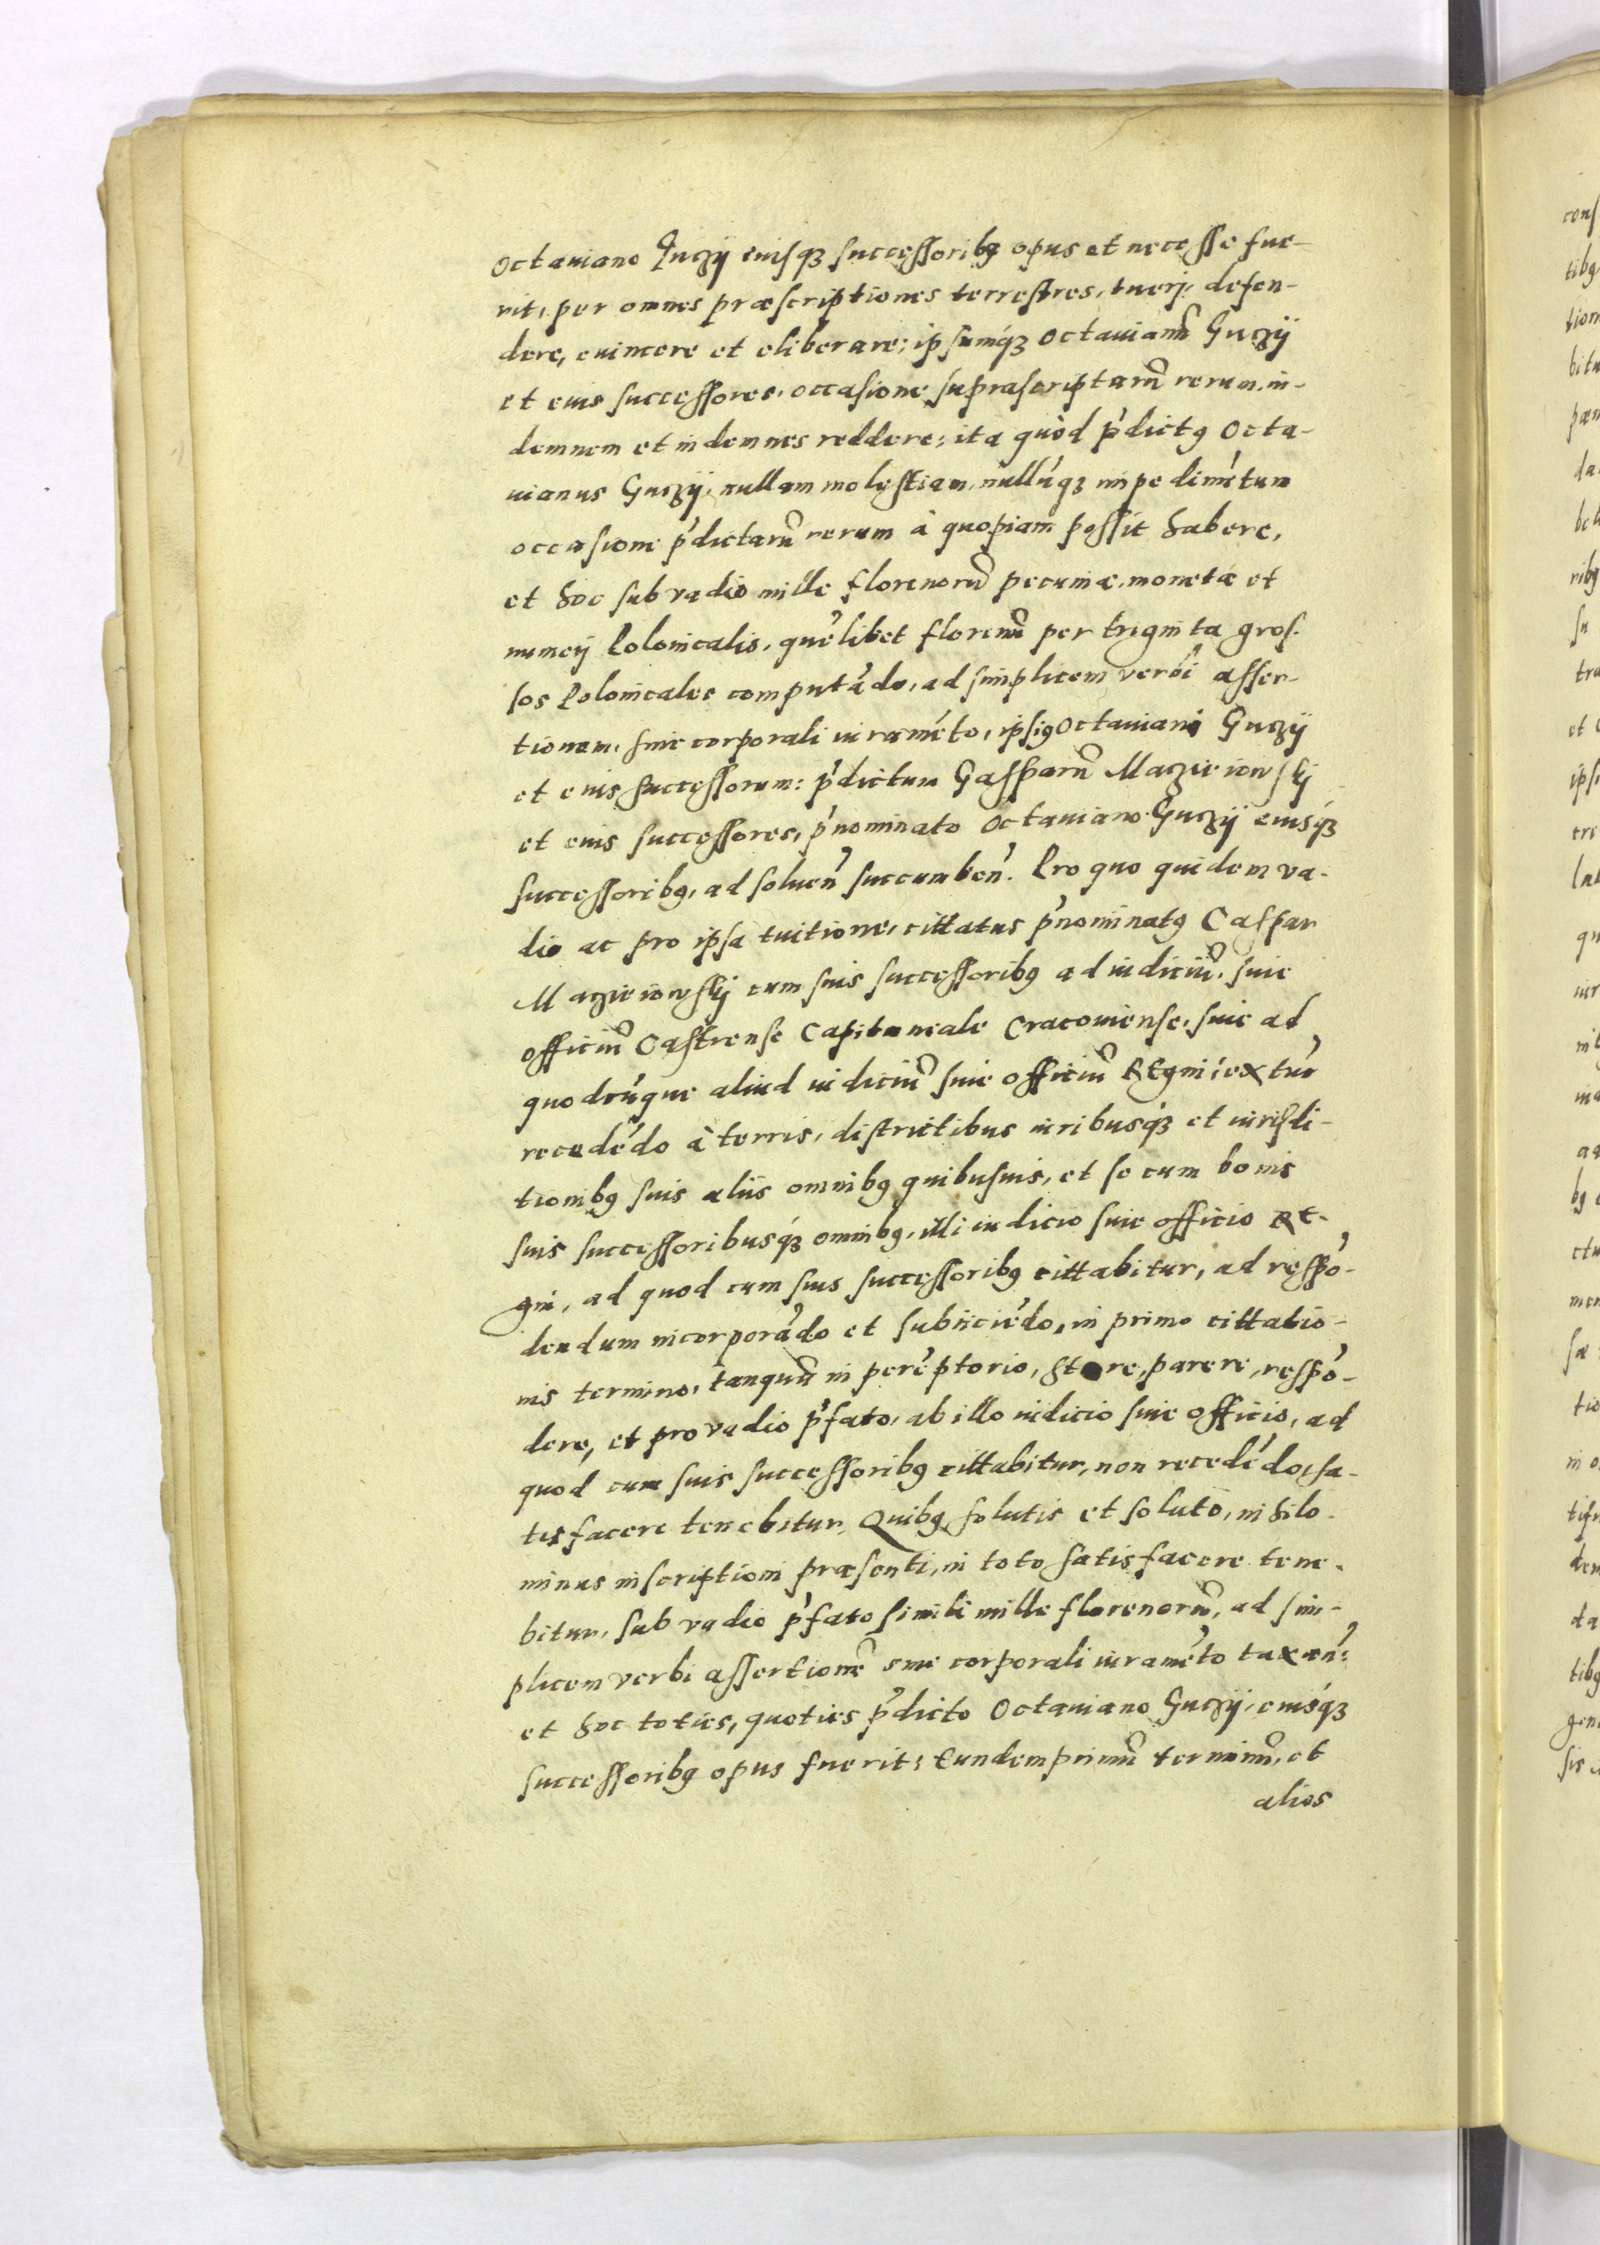 Octauiano Guczÿ eiusq₃ successoribꝰ opus et necesse fue-
rit, per omnes præscriptiones terrestres, tuerj, defen-
dere, euincere et eliberare; ipsumq́₃ Octauianũ Guczÿ
et eius successores, occasione suprascriptarũ rerum, in-
demnem et indemnes reddere; ita quòd p̃dictꝰ Octa-
uianus Guczÿ, nullam molestiam, nullúq₃ impedimẽtum
occasione p̃dictarũ rerum à quopiam possit habere,
et hoc sub vadio mille florenorũ pecuniæ, monetæ et
numerj Polonicalis, quẽlibet florenũ per triginta gros-
sos Polonicales computãdo, ad simplicem verbi asser-
tionem, sine corporali iuramẽto, ipsiꝰ Octauiani Guczÿ
et eius successorum: p̃dictum Gasparũ Maczieiowskj
et eius successores, p̃nominato Octauiano Guczÿ eiusq́₃
successoribꝰ, ad soluen̄ succumben̄. Pro quo quidem va-
dio ac pro ipsa tuitione, cittatus p̃nominatꝰ Caspar
Maczieiowskj cum suis successoribꝰ ad iudiciũ, siue
officiũ Castrense Capitaneale Cracouiense, siue ad
quodcũque aliud iudiciũ siue officiũ Regni; extũc
recedẽdo à terris, districtibus iuribusq́₃ et iurisdi-
tionibꝰ suis aliis omnibꝰ quibusuis, et se cum bonis
suis successoribusq́₃ omnibꝰ, illi iudicio siue officio Re-
gni, ad quod cum suis successoribꝰ cittabitur, ad respõ-
dendum incorporãdo et subiiciẽdo, in primo cittatio-
nis termino, tanquã in perẽptorio, stare, parere, respõ-
dere, et pro vadio p̃fato, ab illo iudicio siue officio, ad
quod cum suis successoribꝰ cittabitur, non recedẽdo, sa-
tisfacere tenebitur. Quibꝰ solutis et soluto, nihilo-
minus inscriptioni præsenti, in toto satisfacere tene-
bitur, sub vadio p̃fato simili mille florenorũ, ad sim-
plicem verbi assertionẽ sine corporali iuramẽto taxan̄:
et hoc toties, quoties p̃dicto Octauiano Guczÿ, eiusq́₃
successoribꝰ opus fuerit; Eundem primũ terminũ, et
alios